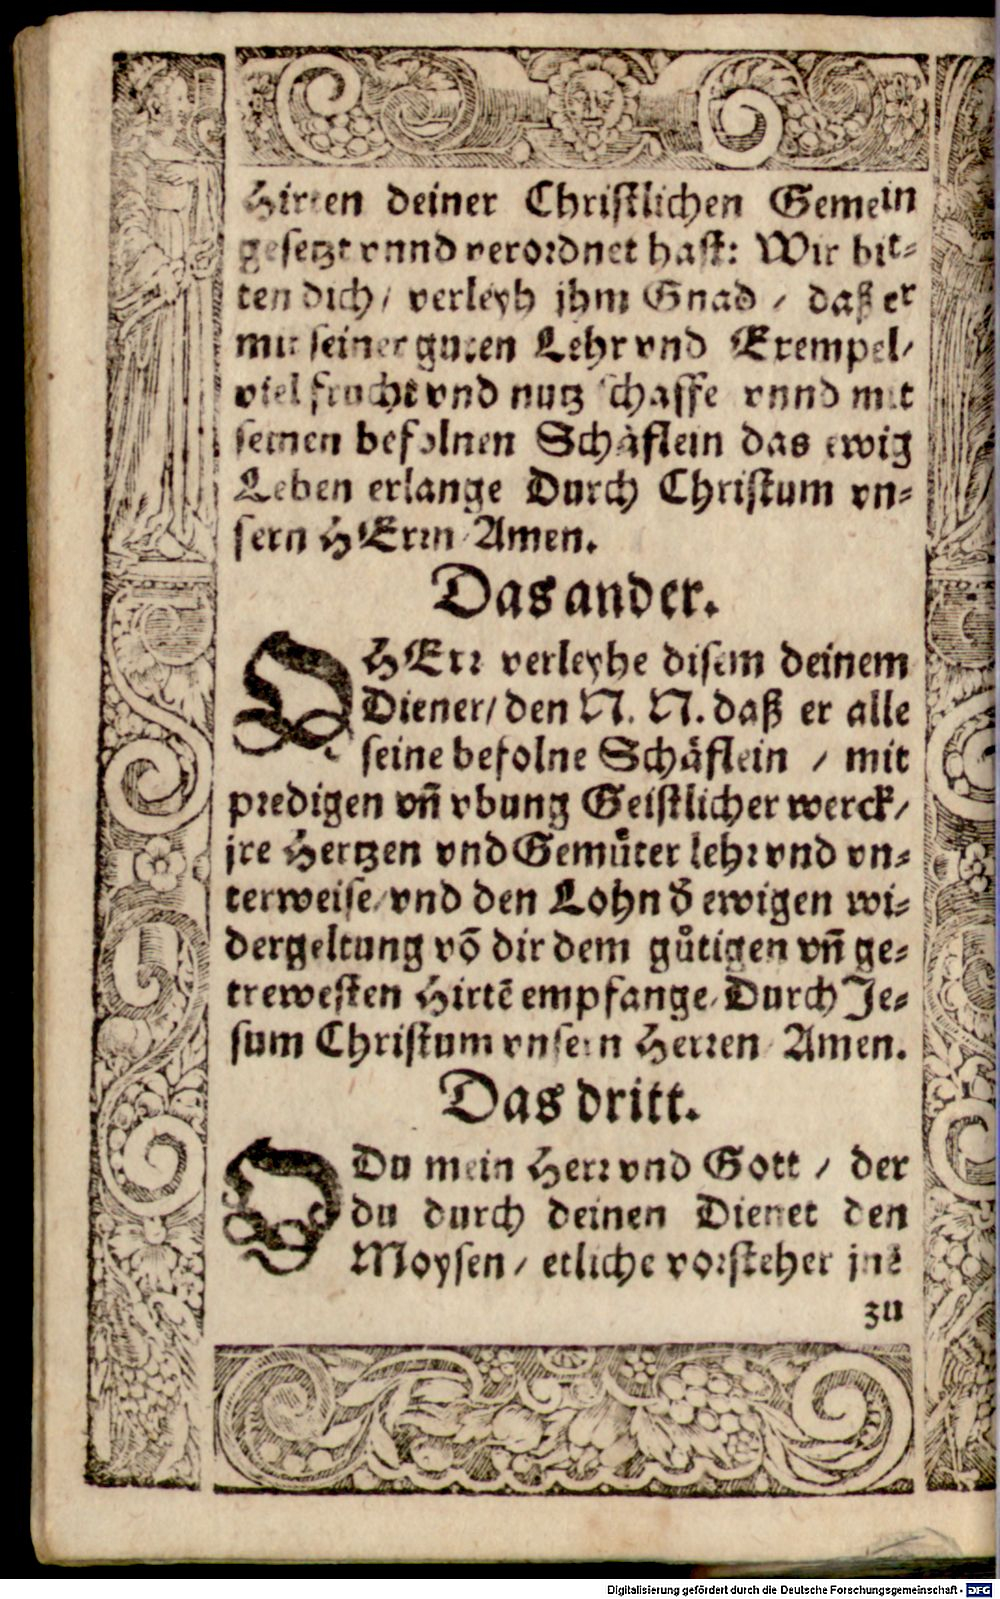 Hirten deiner Christlichen Gemein
gesetzt vnnd verordnet hast: Wir bit⸗
ten dich/ verleyh jhm Gnad / daß er
mit seiner guten Lehr vnd Exempel/
viel frucht vnd nutz schaffe vnnd mit
seinen befolnen Schäflein das ewig
Leben erlange Durch Christum vn⸗
sern HErrn Amen.
Das ander.
O HErr verleyhe disem deinem
Diener/ den N. N. daß er alle
seine befolne Schäflein / mit
predigen vñ vbung Geistlicher werck/
jre Hertzen vnd Gemuͤter lehr vnd vn⸗
terweise/ vnd den Lohn đ ewigen wi⸗
dergeltung võ dir dem guͤtigen vñ ge⸗
trewesten Hirtẽ empfange/ Durch Je⸗
sum Christum vnsern Herren Amen.
Das dritt.
O Du mein Herr vnd Gott / der
du durch deinen Diener den
Moysen / etliche vorsteher jnẽ
zu
Digitalisierung gefördert durch die Deutsche Forschungsgemeinschaft - DFG